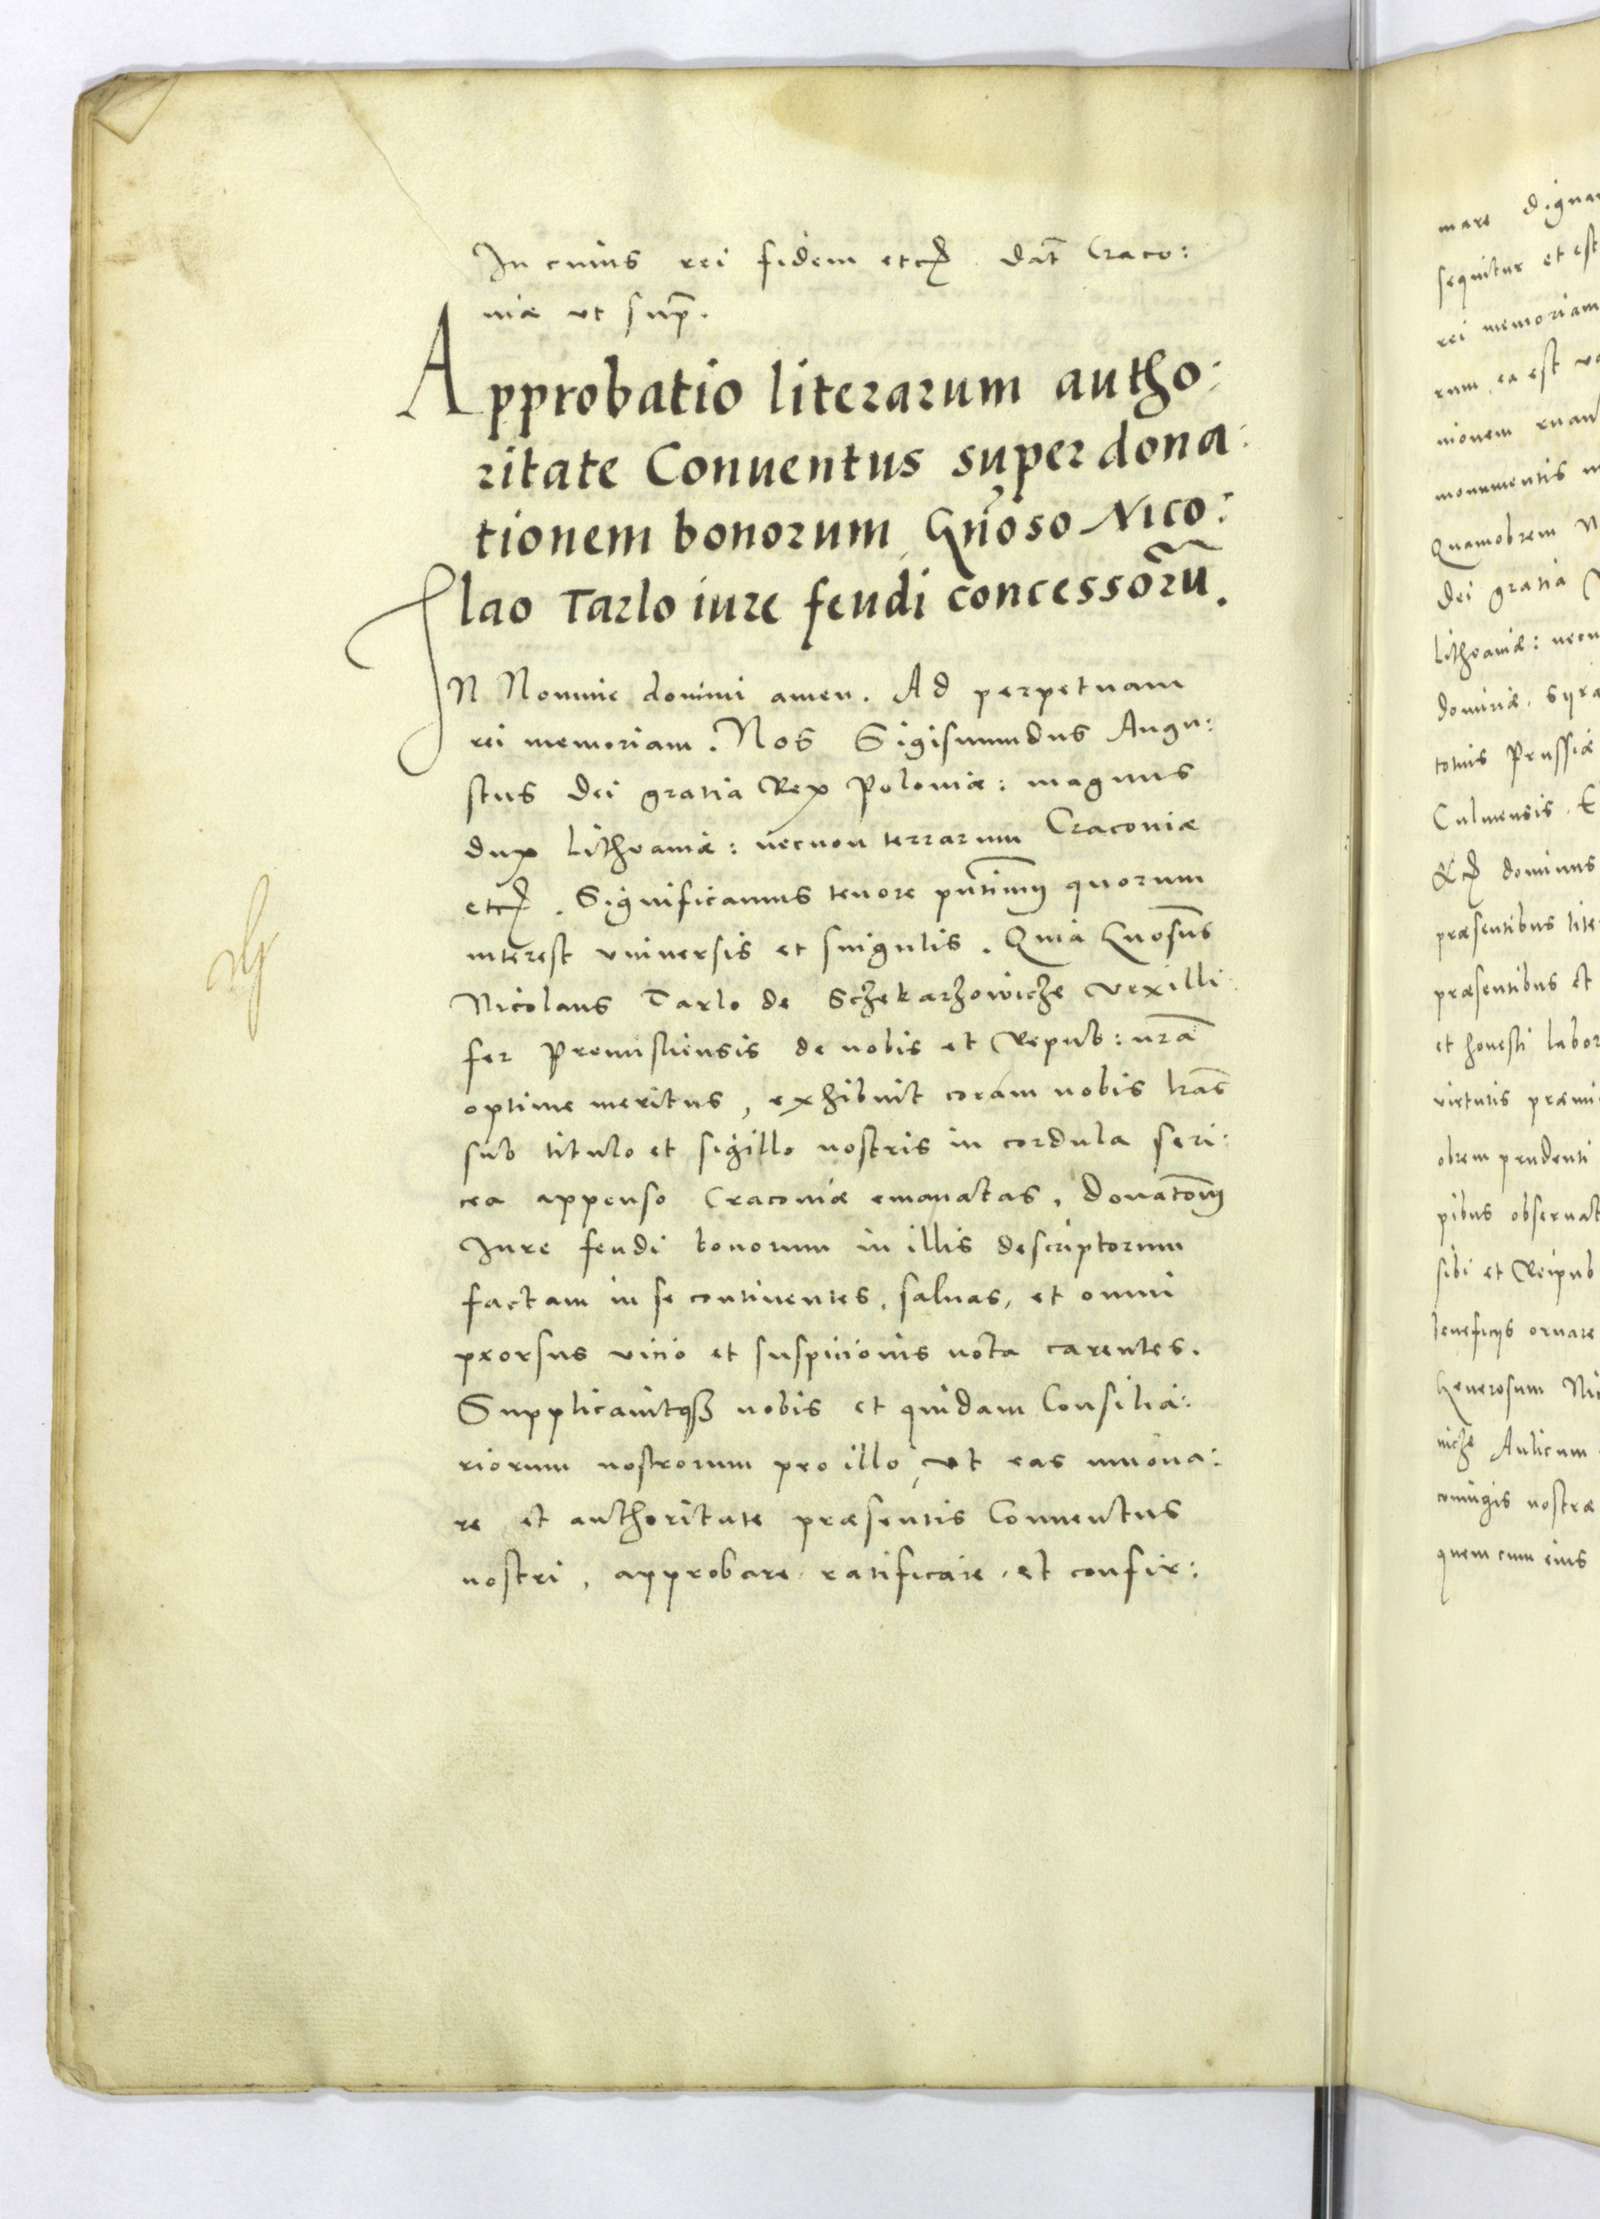 In cuius rei fidem etc. dat Craco:
uiæ ut sup.
Approbatio literarum autho:
ritate Conuentus super dona:
tionem bonorum Gñoso Nico:
lao Tarlo iure feudi concessorũ.
IN Nomine domini amen. Ad perpetuam
rei memoriam. Nos Sigismundus Augu:
stus dei gratia Rex Poloniæ: magnus
dux Lithvaniæ: necnon terrarum Cracoviæ
etc. Significamus tenore pñtium quorum
interest vniuersis et singulis. Quia Gnosus
Nicolaus Tarlo de Sczekarzowicze vexilli:
fer Premisliensis de nobis et Repub: nrã
optime meritus, exhibuit coram nobis lras
sub titulo et sigillo nostris in cordula seri:
cea appenso Cracoviæ emanatas, donatõem
Iure feudi bonorum in illis descriptorum
factam in se continentes, saluas, et omni
prorsus vicio et suspicionis nota carentes.
Supplicauitq3 nobis et quidam Consilia:
riorum nostrorum pro illo, ut eas innoua:
re et authoritate præsentis Conuentus
nostri, approbare ratificare et confir:
mare
sequitur et est
rei memoriam
rum ea est
monumentis
Quamobrem
dei gratia
Lithvaniæ:
dominæ,
totius Prussiæ
Culmensis.
dominus
præsentibus
præsentibus et
et honesti
virtutis
obrem prudenti
pibus
sibi et Reipub
beneficijs ornare
Generosum
Aulicum
coniugis nostræ
quem cum eius